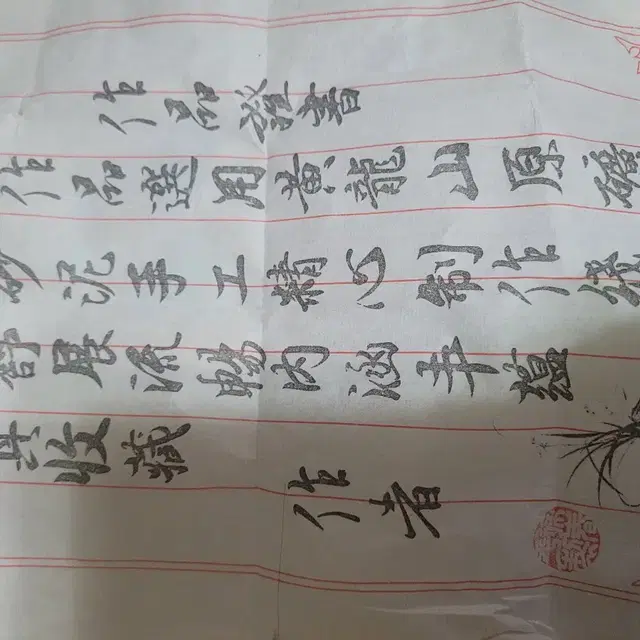 作品證書
作品選用黃龍山原礦
砂泥手工精心制作線
舒展流暢內涵丰蘊
收藏
作者